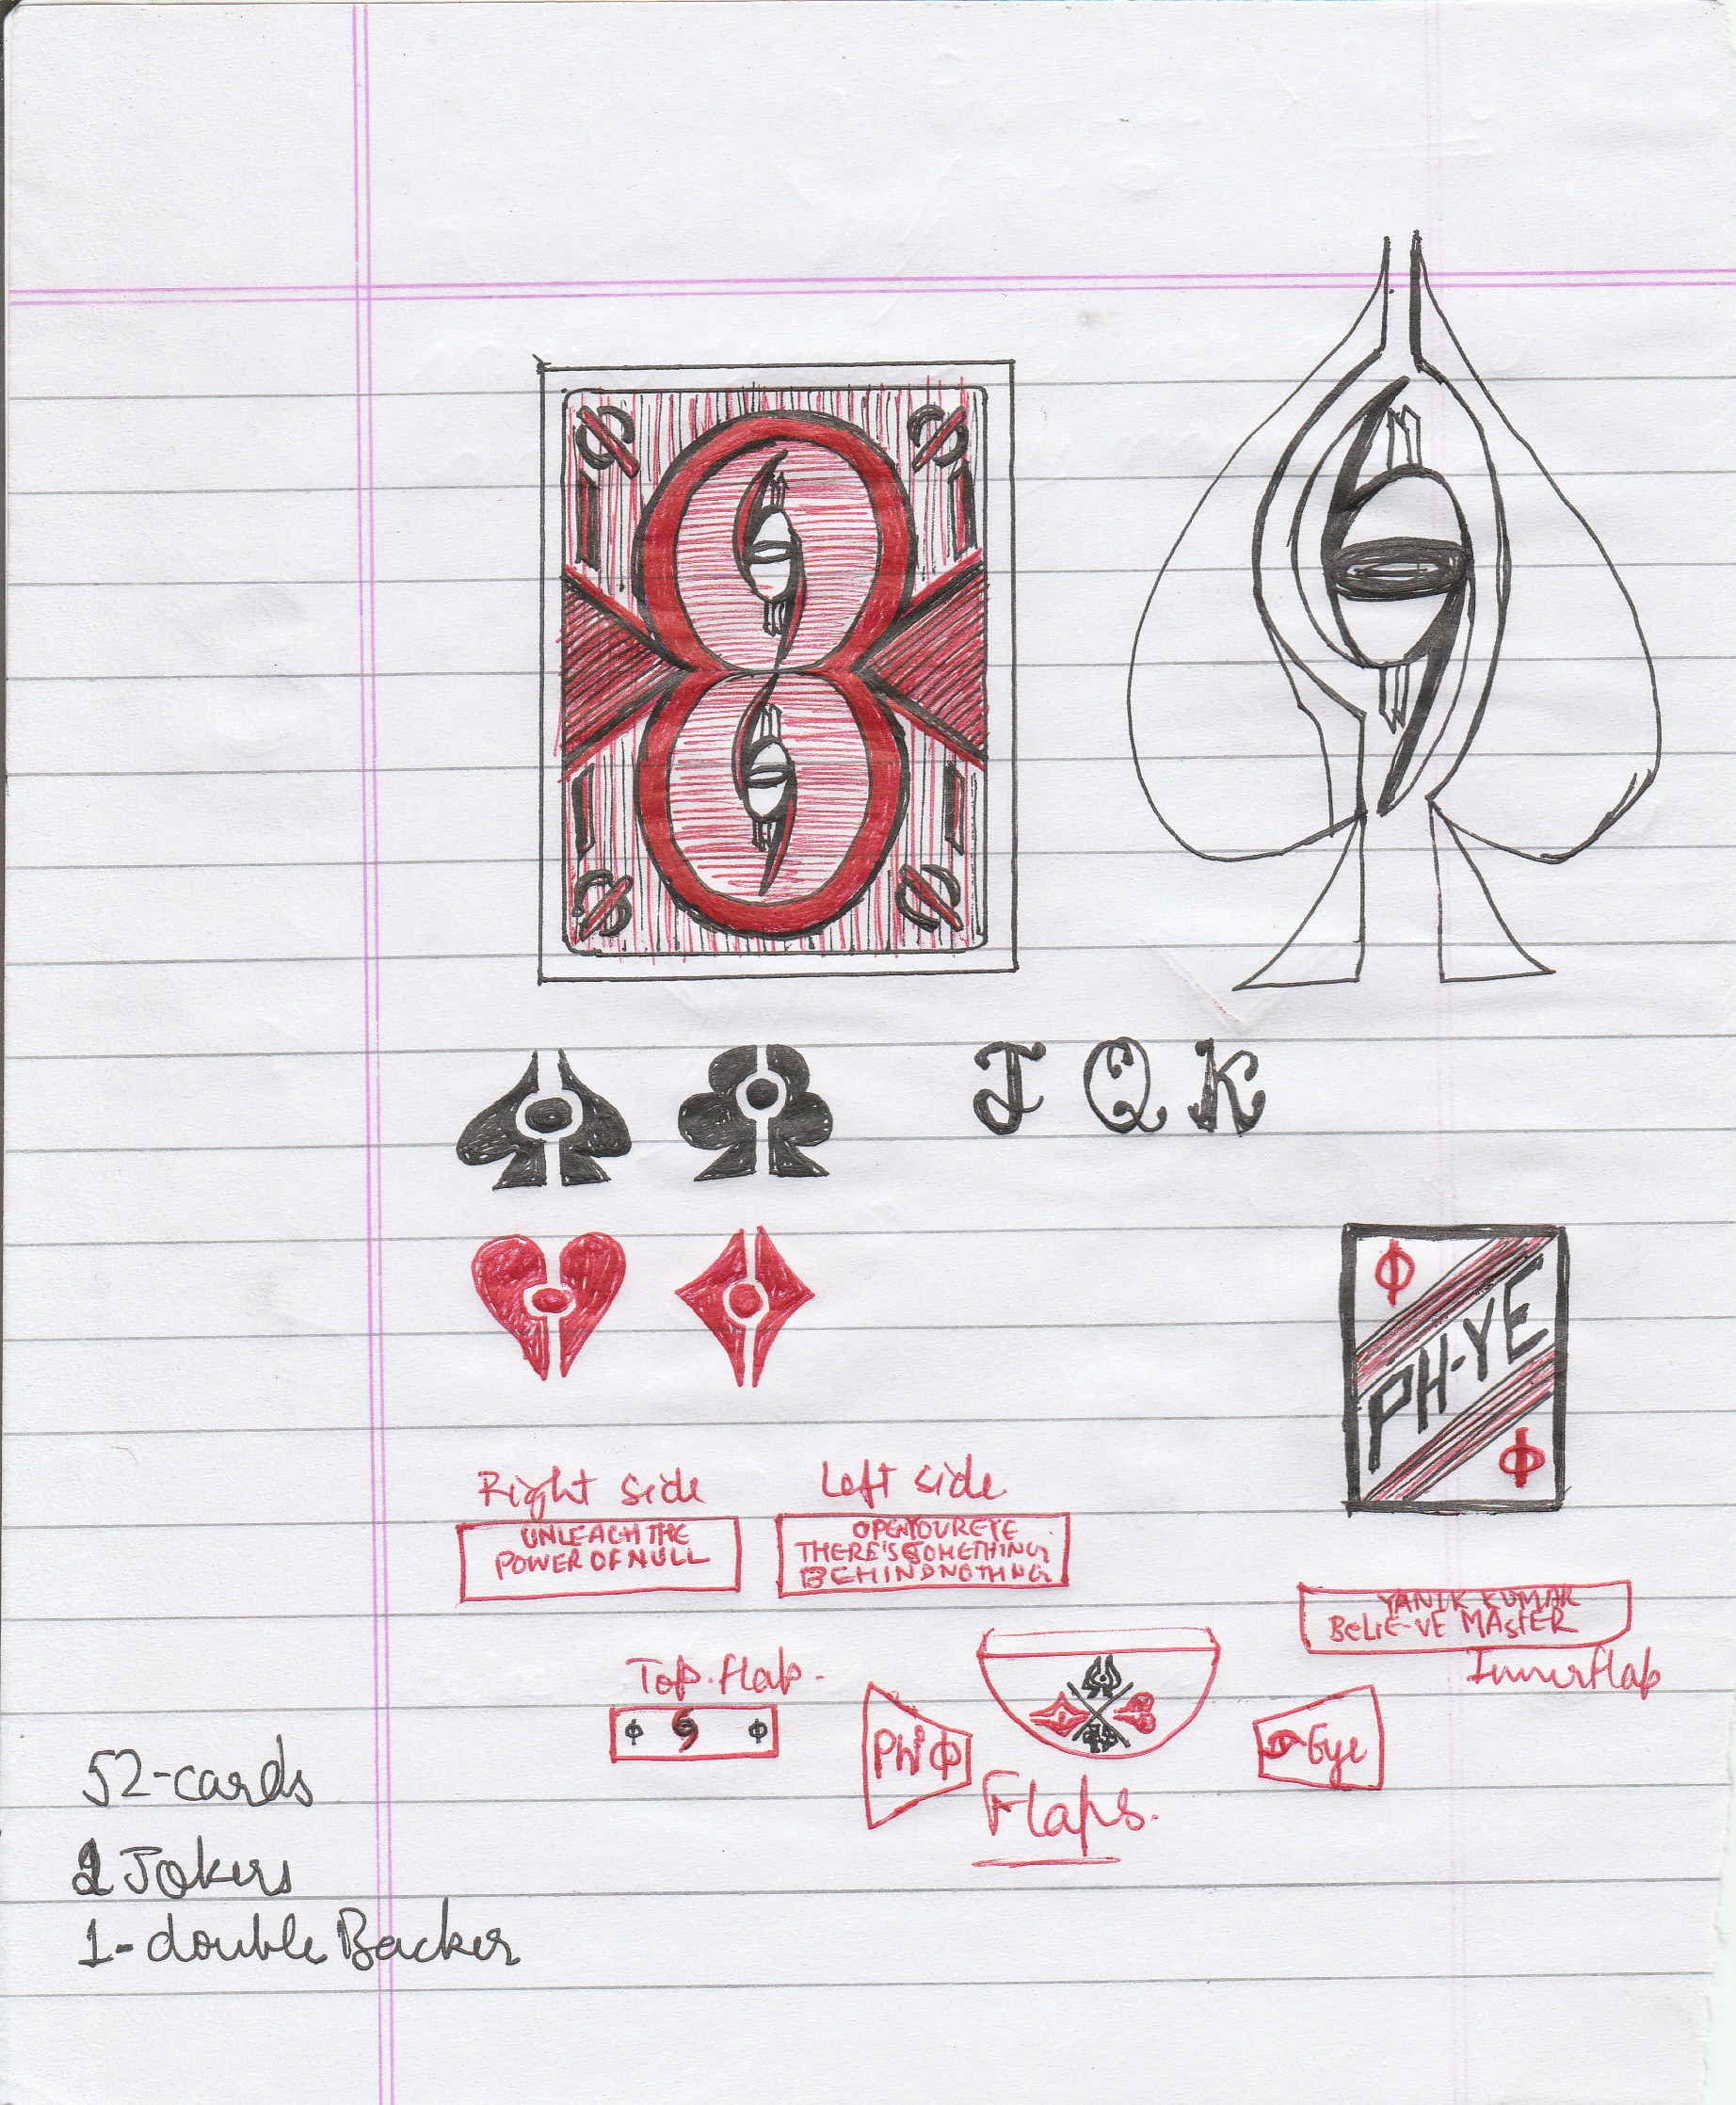 J Q K
Φ
PH-YE
Φ
Right side
Left side
UNLEACH THE
POWER OF NULL
OPEN YOUR EYE
THERE'S SOMETHING
BEHIND NOTHING
YANIK KUMAR
BELIE-VE MASTER
Inner flap
Top flap.
Φ Φ
Phi Φ
Eye
Flaps.
52-cards
2 Jokers
1-double Backer